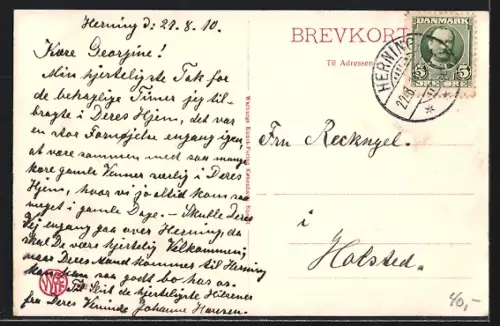 Herning d: 21.8.10.
Kære Georgine!
Min hjerteligste Tak for
de behagelige Timer jeg til-
bragte i Deres Hjem, det var
en stor Fornøjelse engang igen,
at være sammen med saa mange
kære gamle Venner særlig i Deres
Hjem, hvor vi jo altid kom saa
meget i gamle Dage. – Skulle Deres
Vej engang gaa over Herning, da
skal De være hjertelig Velkommen,
naar Deres Mand kommer til Herning
kan han saa godt bo hos os.
Til Slut de hjerteligste Hilsener
fra Deres Veninde Johanne Hansen.
BREVKORT
Til Adressen
DANMARK
5 5
HERNING
22.8
Fru Recknyel.
i
Holsted.
40,-